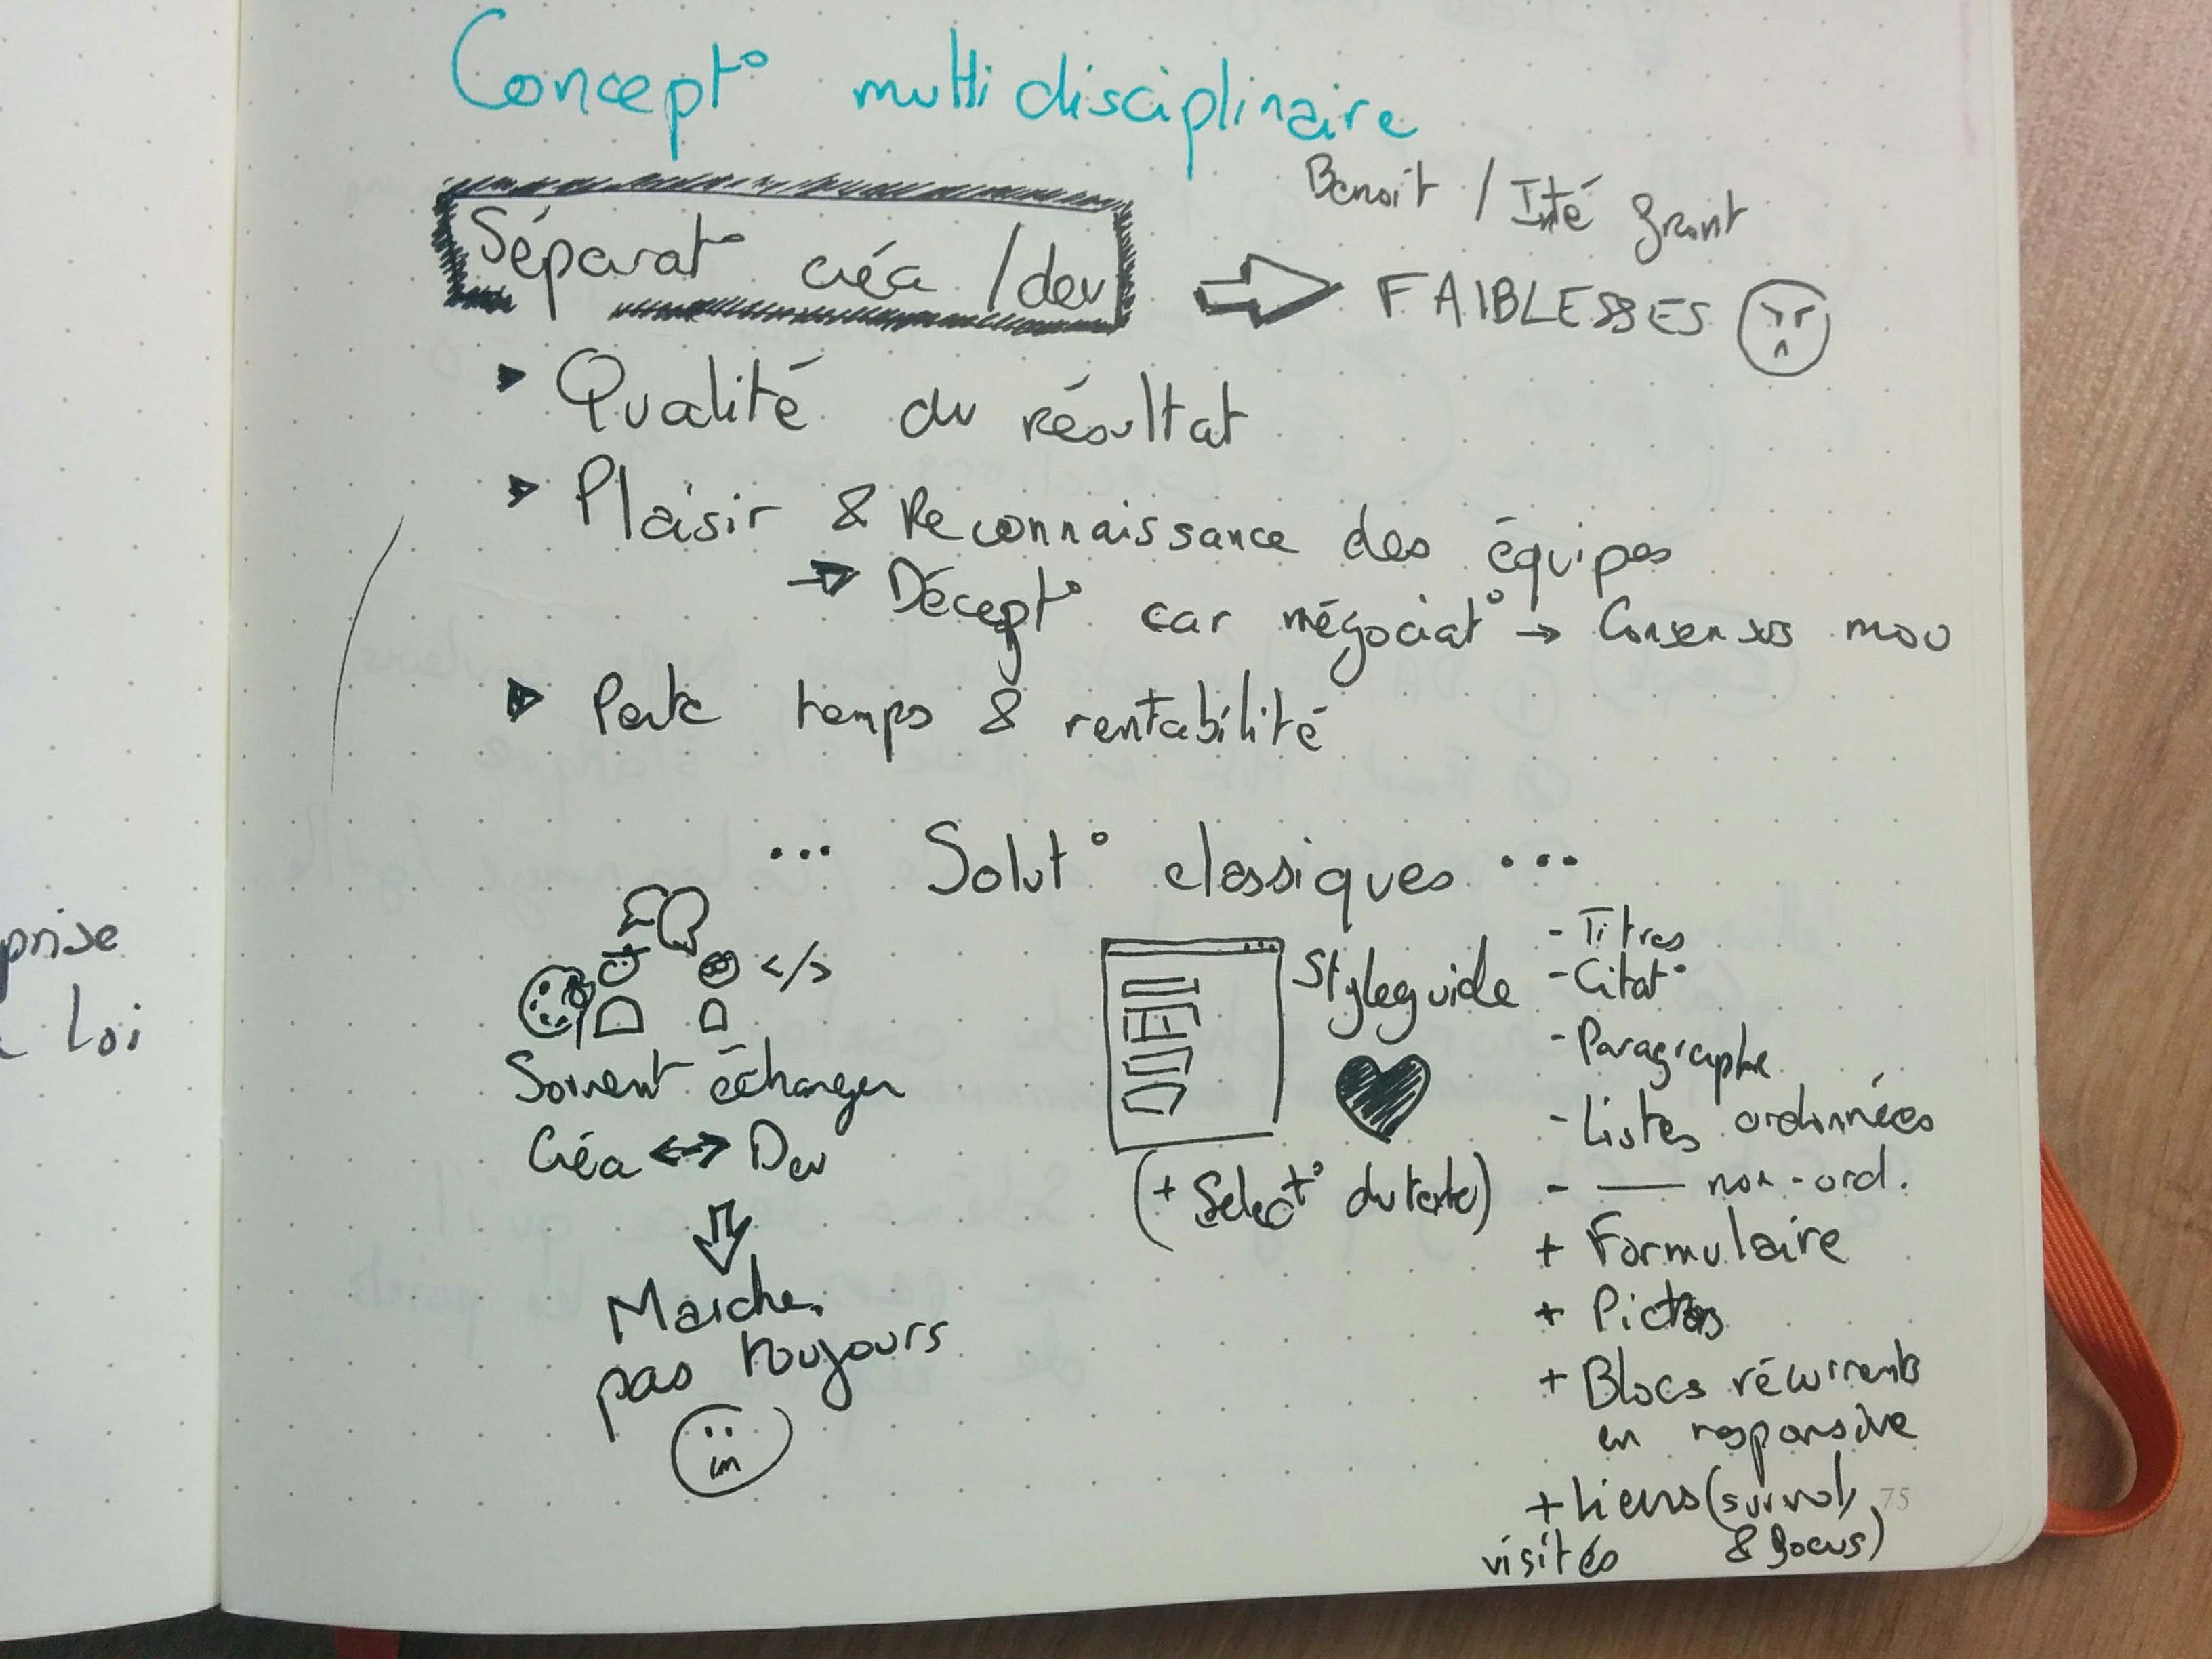 Concept° multidisciplinaire
Benoit / Inté front
Séparat° créa /dev
FAIBLESSES
Qualité du résultat
Plaisir & Reconnaissance des équipes
→ Décept° car négociat° → Consensus mou
Perte temps & rentabilité
... Solut° classiques ...
</>
Souvent échanger
Créa ↔ Dev
Marche
pas toujours
Styleguide
(+ Select° du texte)
- Titres
- Citat°
- Paragraphe
- Listes ordonnées
- — non-ord.
+ Formulaire
+ Pictos
+ Blocs récurrents
en responsive
+ Liens (survol,
visités & focus)
75
prise
loi